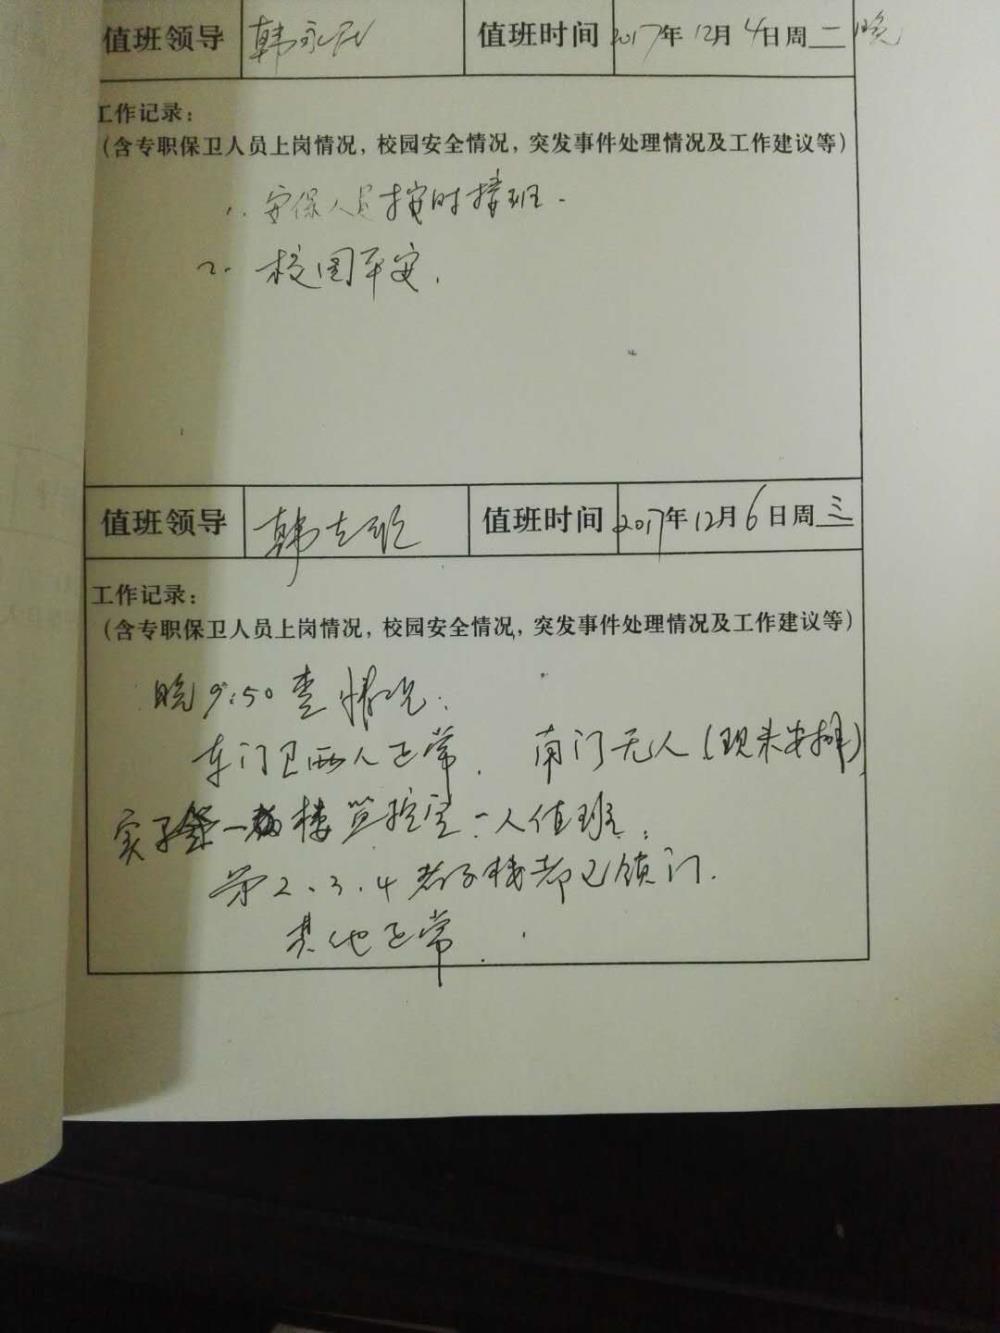 值班领导 韩永 值班时间 2017年12月4日周二晚
工作记录：
（含专职保卫人员上岗情况，校园安全情况，突发事件处理情况及工作建议等）
1. 安保人员按时接班.
2. 校园平安.
值班领导 韩 值班时间 2017年12月6日周三
工作记录：
（含专职保卫人员上岗情况，校园安全情况，突发事件处理情况及工作建议等）
晚9:50查情况:
东门卫两人正常. 南门无人(现未安排)
实 一 楼监控室一人值班;
第2、3、4 楼都已锁门.
其他正常.